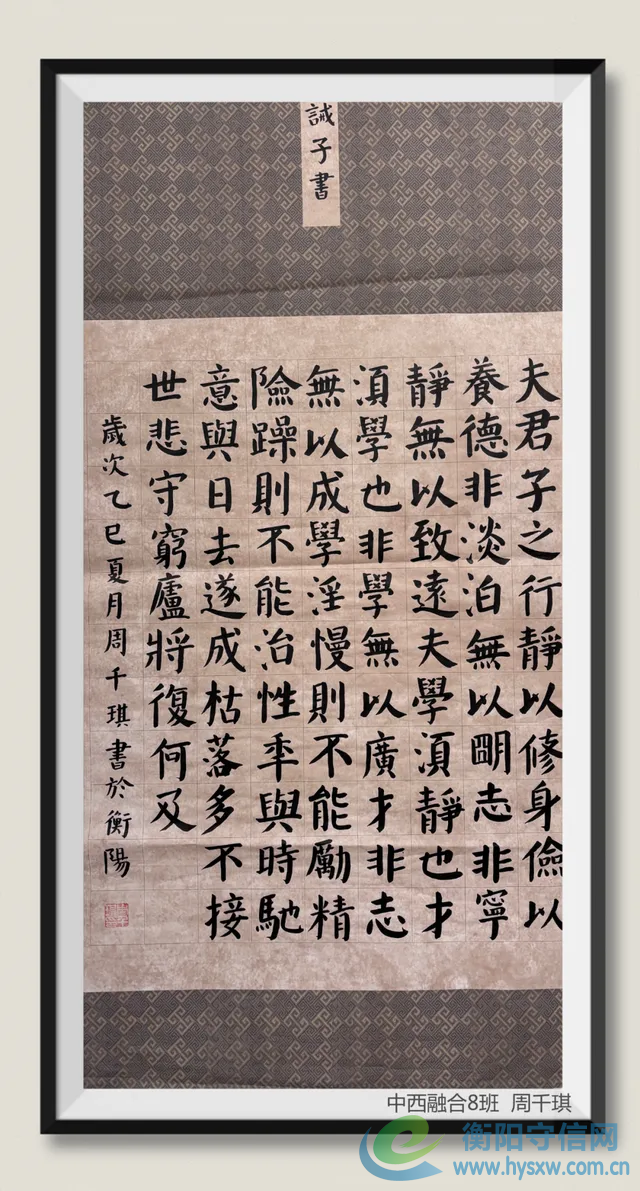 誡子書
夫君子之行靜以修身儉以
養德非淡泊無以眀志非寧
靜無以致遠夫學湏靜也才
湏學也非學無以廣才非志
無以成學淫慢則不能勵精
險躁則不能治性年與時馳
意與日去遂成枯落多不接
世悲守窮廬將復何及
歲次乙巳夏月周千琪書於衡陽
中西融合8班 周千琪
衡阳守信网
www.hysxw.com.cn